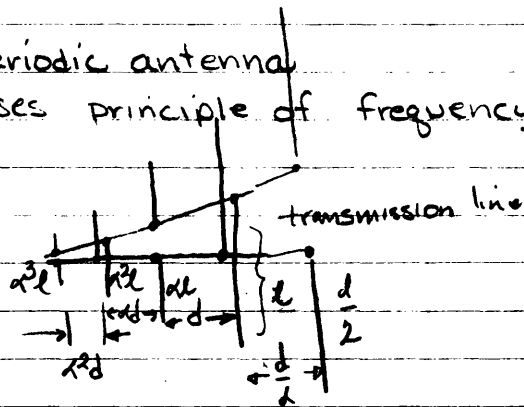 eriodic antenna
ses principle of frequency
transmission line
α³l α²l αl l
αd d
d
2
α²d
d
α